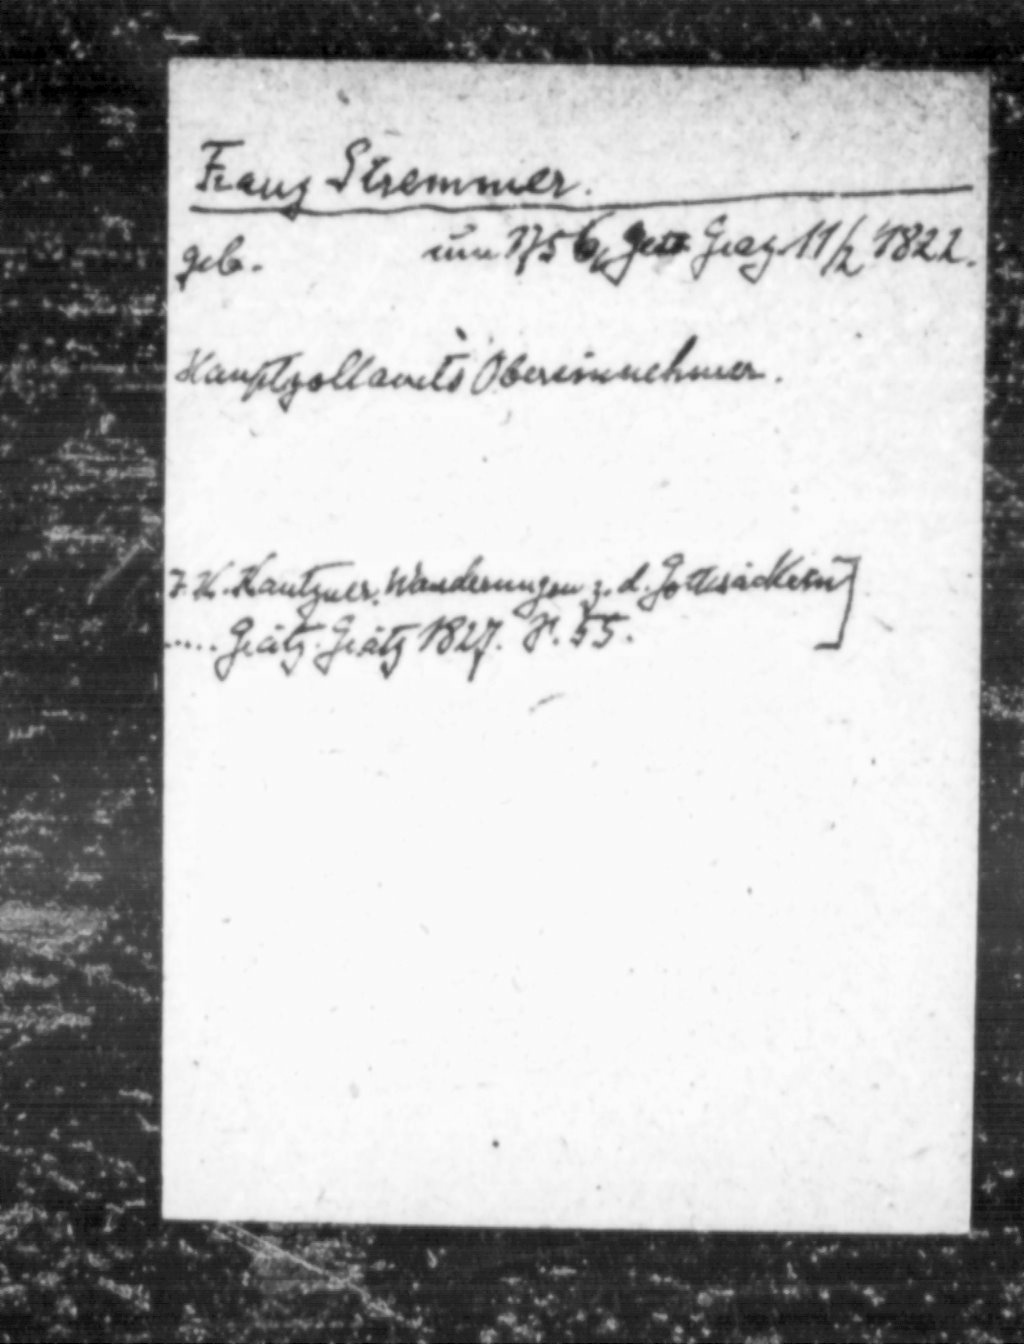 Franz Stremmer.
geb. um 1756, gest Graz 11/2 1822.
Hauptzollamts Obereinnehmer.
F. K. Kautzner. Wanderungen z. d. Gottesäckern
..... Grätz. Grätz 1827. S. 55.